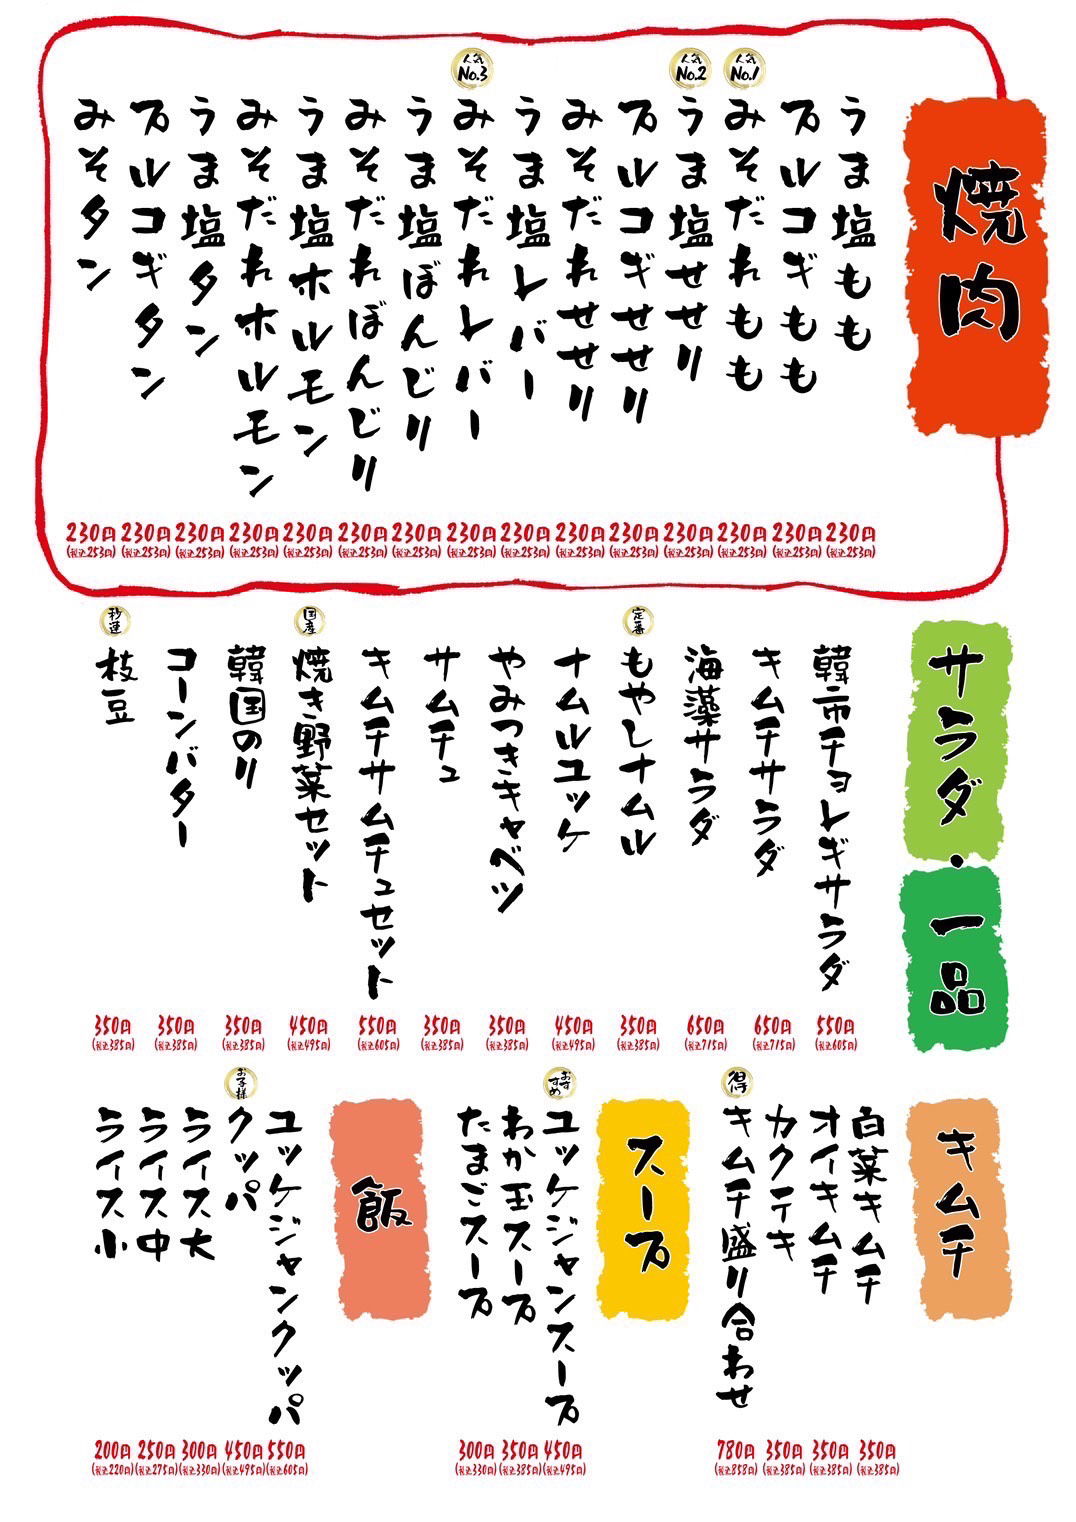 焼肉
うま塩もも
230円
(税込253円)
プルコギもも
230円
(税込253円)
人気No.1
みそだれもも
230円
(税込253円)
人気No.2
うま塩せせり
230円
(税込253円)
プルコギせせり
230円
(税込253円)
みそだれせせり
230円
(税込253円)
うま塩レバー
230円
(税込253円)
人気No.3
みそだれレバー
230円
(税込253円)
うま塩ぼんじり
230円
(税込253円)
みそだれぼんじり
230円
(税込253円)
うま塩ホルモン
230円
(税込253円)
みそだれホルモン
230円
(税込253円)
うま塩タン
230円
(税込253円)
プルコギタン
230円
(税込253円)
みそタン
230円
(税込253円)
サラダ・一品
韓市チョレギサラダ
550円
(税込605円)
キムチサラダ
650円
(税込715円)
海藻サラダ
650円
(税込715円)
定番
もやしナムル
350円
(税込385円)
ナムルユッケ
450円
(税込495円)
やみつきキャベツ
350円
(税込385円)
サムチュ
350円
(税込385円)
キムチサムチュセット
550円
(税込605円)
国産
焼き野菜セット
450円
(税込495円)
韓国のり
350円
(税込385円)
コーンバター
350円
(税込385円)
秒速
枝豆
350円
(税込385円)
キムチ
白菜キムチ
350円
(税込385円)
オイキムチ
350円
(税込385円)
カクテキ
350円
(税込385円)
得
キムチ盛り合わせ
780円
(税込858円)
スープ
おすすめ
ユッケジャンスープ
450円
(税込495円)
わか玉スープ
350円
(税込385円)
たまごスープ
300円
(税込330円)
飯
ユッケジャンクッパ
550円
(税込605円)
お子様
クッパ
450円
(税込495円)
ライス大
300円
(税込330円)
ライス中
250円
(税込275円)
ライス小
200円
(税込220円)